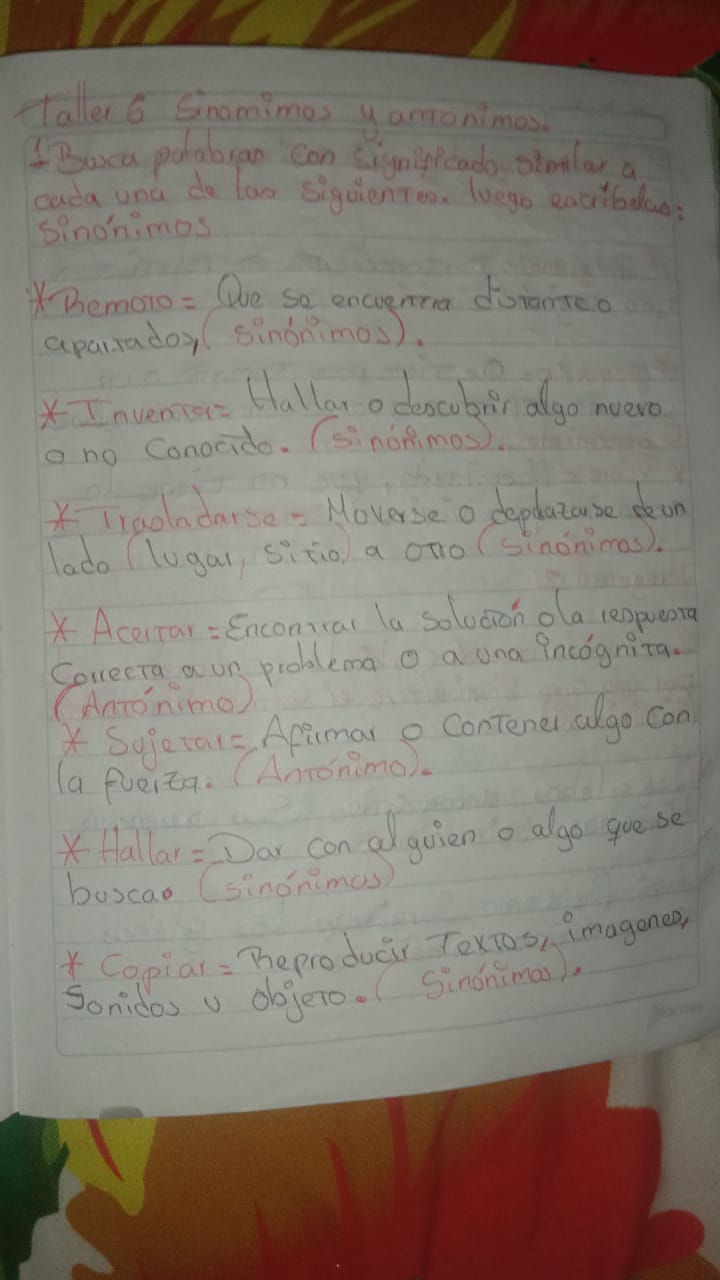 Taller 6 Sinomimos y antonimos.
1 Busca palabras con significado similar a
cada una de las siguientes. luego escribelas:
Sinónimos
* Remoto = Que se encuentra distante o
apartado, (sinónimos).
* Inventar = Hallar o descubrir algo nuevo
o no conocido. (sinónimos).
* Trasladarse = Moverse o deplazarse de un
lado (lugar, sitio) a otro (sinónimos).
* Acertar = Encontrar la solución o la respuesta
correcta a un problema o a una incógnita.
(Antónimo)
* Sujetar = Afirmar o contener algo con
la fuerza. (Antónimo).
* Hallar = Dar con alguien o algo que se
busca. (sinónimos)
* Copiar = Reproducir Textos, imagenes,
Sonidos u objeto. (Sinónimos).